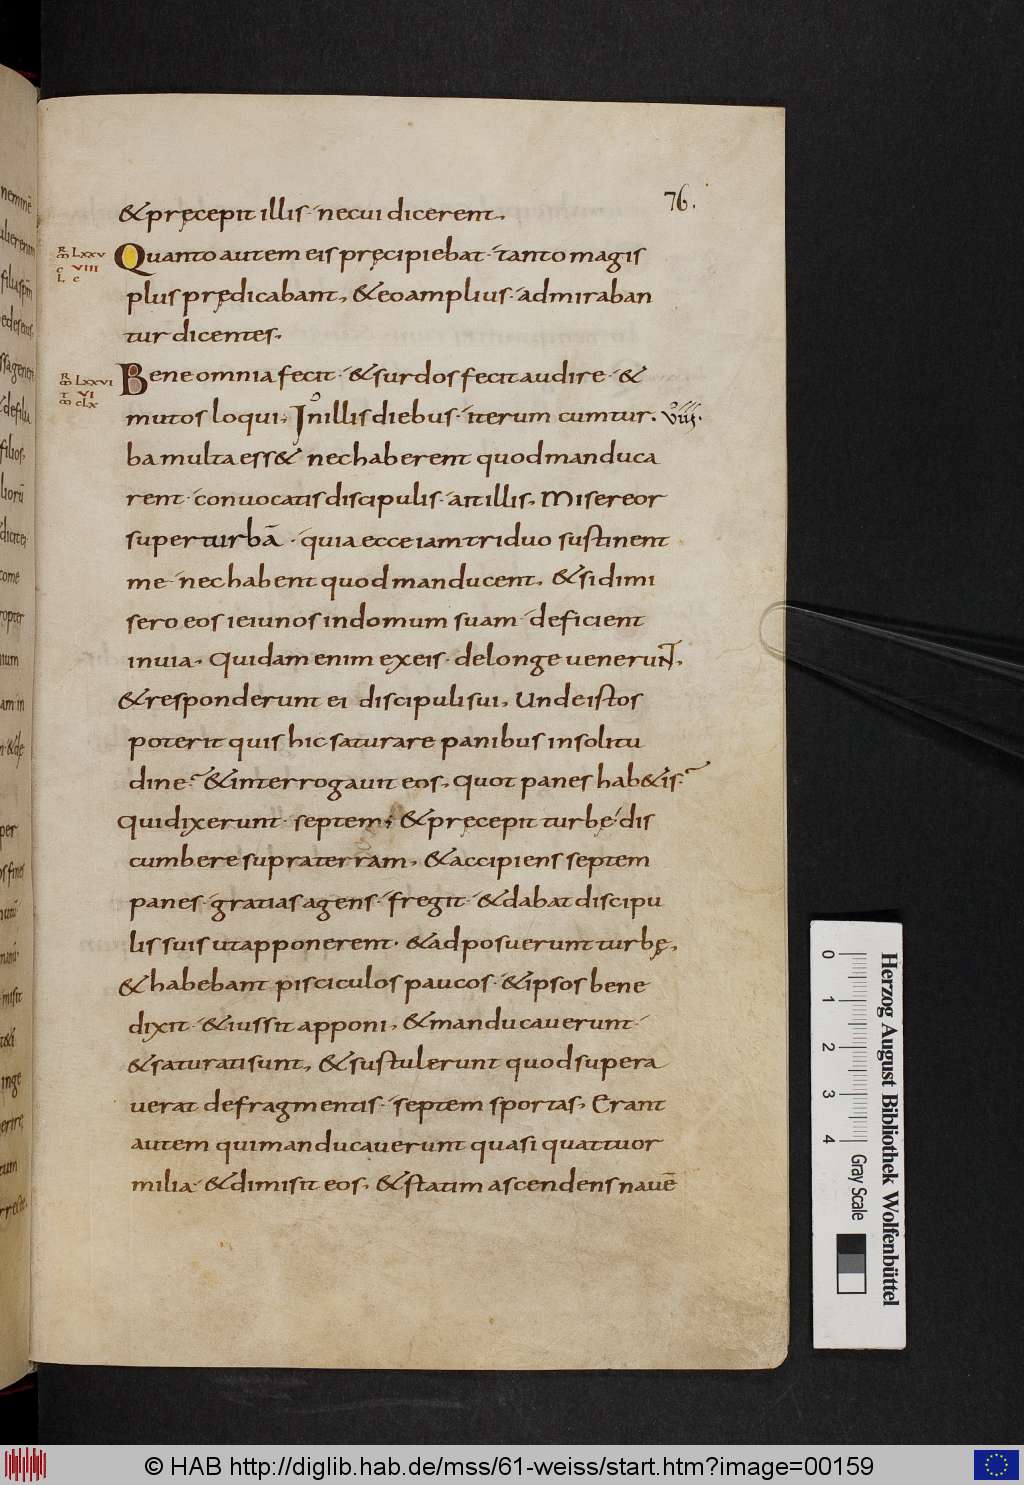 76.
& pręcepit illis · necui dicerent,
Quanto autem eis pręcipiebat · tanto magis
plus prędicabant, & eo amplius · admiraban
tur dicentes.
Bene omnia fecit · & surdos fecit audire · &
mutos loqui, In illis diebus · iterum cum tur. viiij.
ba multa ess& nec haberent quod manduca
rent · conuocatis discipulis · ait illis, Misereor
super turbā · quia ecce iam triduo sustinent
me · nec habent quod manducent, & si dimi
sero eos ieiunos in domum suam · deficient
in uia, Quidam enim ex eis · de longe uenerunt,
& responderunt ei discipuli sui, Unde istos
poterit quis hic saturare panibus in solitu
dine? & interrogauit eos, Quot panes hab&is?
Qui dixerunt · septem; & pręcepit turbę dis
cumbere supra terram, & accipiens septem
panes · gratias agens · fregit · & dabat discipu
lis suis ut apponerent · & adposuerunt turbę,
& habebant pisciculos paucos · & ipsos bene
dixit · & iussit apponi, & manducauerunt ·
& saturati sunt, & sustulerunt quod supera
uerat de fragmentis · septem sportas, Erant
autem qui manducauerunt quasi quattuor
milia · & dimisit eos, & statim ascendens nauē
LXXV
VIII
LXXVI
VI
CLX
0 1 2 3 4
Gray Scale
Herzog August Bibliothek Wolfenbüttel
© HAB http://diglib.hab.de/mss/61-weiss/start.htm?image=00159